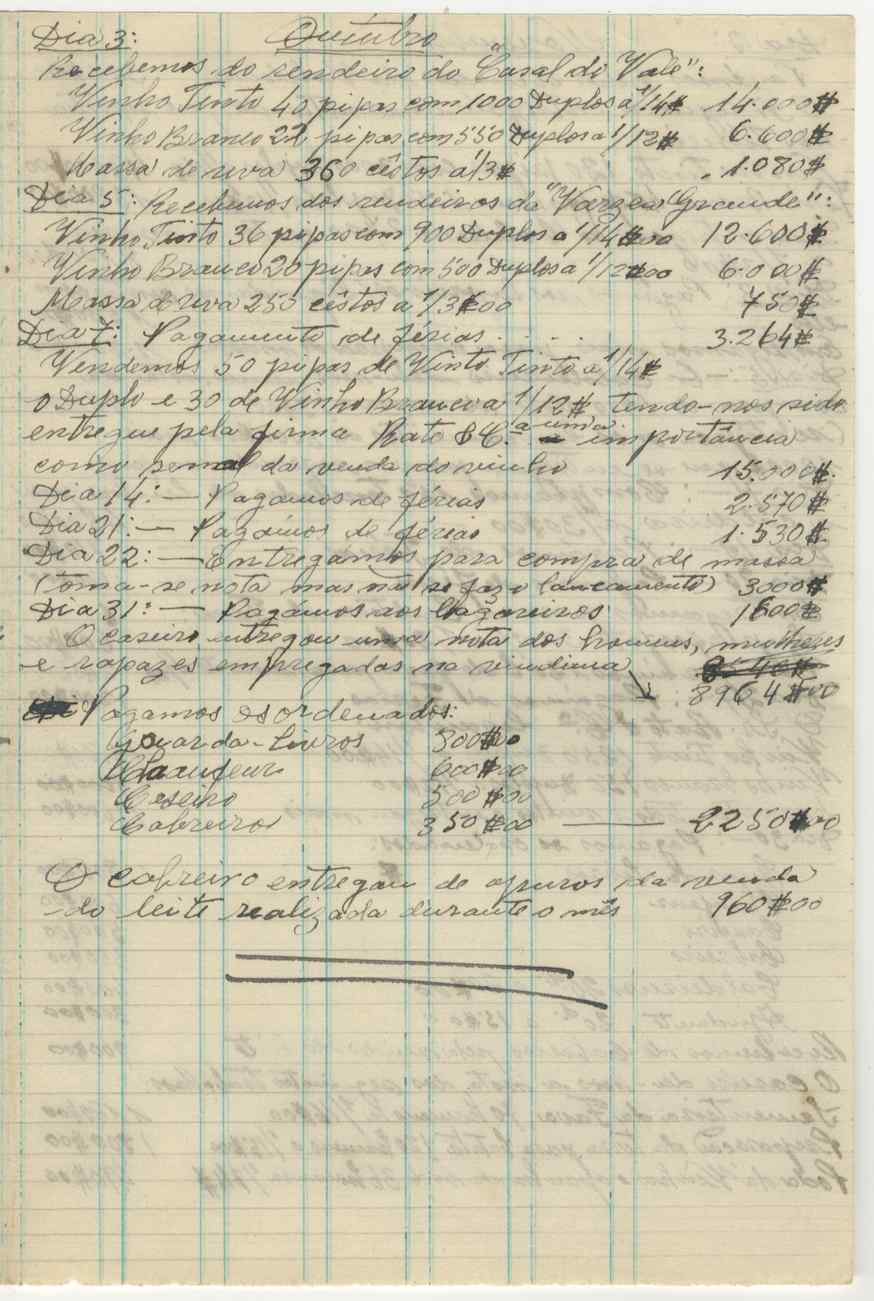 Dia 3: Outubro
Recebemos do rendeiro do "Casal do Vale":
Vinho Tinto 40 pipas com 1000 Duplos a 1/14$ 14.000$
Vinho Branco 22 pipas com 550 Duplos a 1/12$ 6.600$
Massa de uva 360 cêstos a 1/3$ 1.080$
Dia 5: Recebemos dos rendeiros da "Varzea Grande":
Vinho Tinto 36 pipas com 900 Duplos a 1/14$00 12.600$
Vinho Branco 20 pipas com 500 Duplos a 1/12$00 6.000$
Massa d uva 250 cêstos a 1/3$00 750$
Dia 7: Pagamento de férias . . . . 3.264$
Vendemos 50 pipas de Vinto Tinto a 1/14$
o Duplo e 30 de Vinho Branco a 1/12$ tendo-nos sido
entregue pela firma Rato & C.ª uma importância
como senal da venda do vinho 15.000$
Dia 14: — Pagamos de férias 2.570$
Dia 21: — Pagámos de férias 1.530$
Dia 22: — Entregamos para compra de massa
(toma-se nota mas não se faz o lançamento) 3000$
Dia 31: — Pagámos aos lagareiros 1600$
O caseiro entregou uma nota dos homens, mulheres
e rapazes empregados na vindima
8964$00
Pagamos os ordenados:
Guarda-Livros 800$00
Chaufeur 600$00
Caseiro 500$00
Cabreiros 350$00 — 2250$00
O cabreiro entregou de apuros da venda
do leite realizada durante o mês 960$00